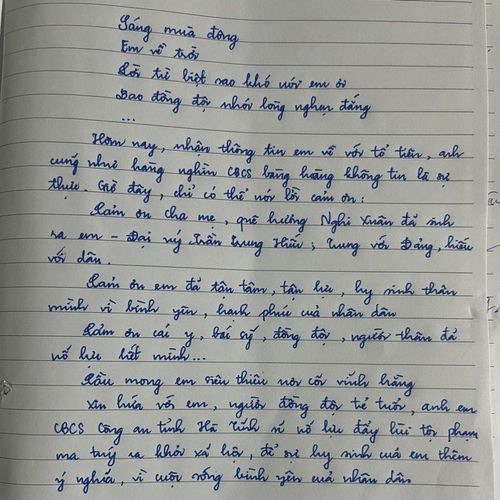 Sáng mùa đông
Em về trời
Lời từ biệt sao khó với em ơi
Bao đồng đội nhói lòng nghẹn đắng
...
Hôm nay, nhận thông tin em về với tổ tiên, anh
cũng như hàng nghìn CBCS bàng hoàng không tin là sự
thực. Giờ đây, chỉ có thể nói lời cảm ơn:
Cảm ơn cha mẹ, quê hương Nghi Xuân đã sinh
ra em - Đại uý Trần Trung Hiếu; trung với Đảng, hiếu
với dân.
Cảm ơn em đã tận tâm, tận lực, hy sinh thân
mình vì bình yên, hạnh phúc của nhân dân
Cảm ơn các y, bác sỹ, đồng đội, người thân đã
nỗ lực hết mình...
Cầu mong em siêu thiêu nơi cõi vĩnh hằng
Xin hứa với em, người đồng đội trẻ tuổi, anh em
CBCS Công an tỉnh Hà Tĩnh sẽ nỗ lực đẩy lùi tội phạm
ma tuý ra khỏi xã hội, để sự hy sinh của em thêm
ý nghĩa, vì cuộc sống bình yên của nhân dân